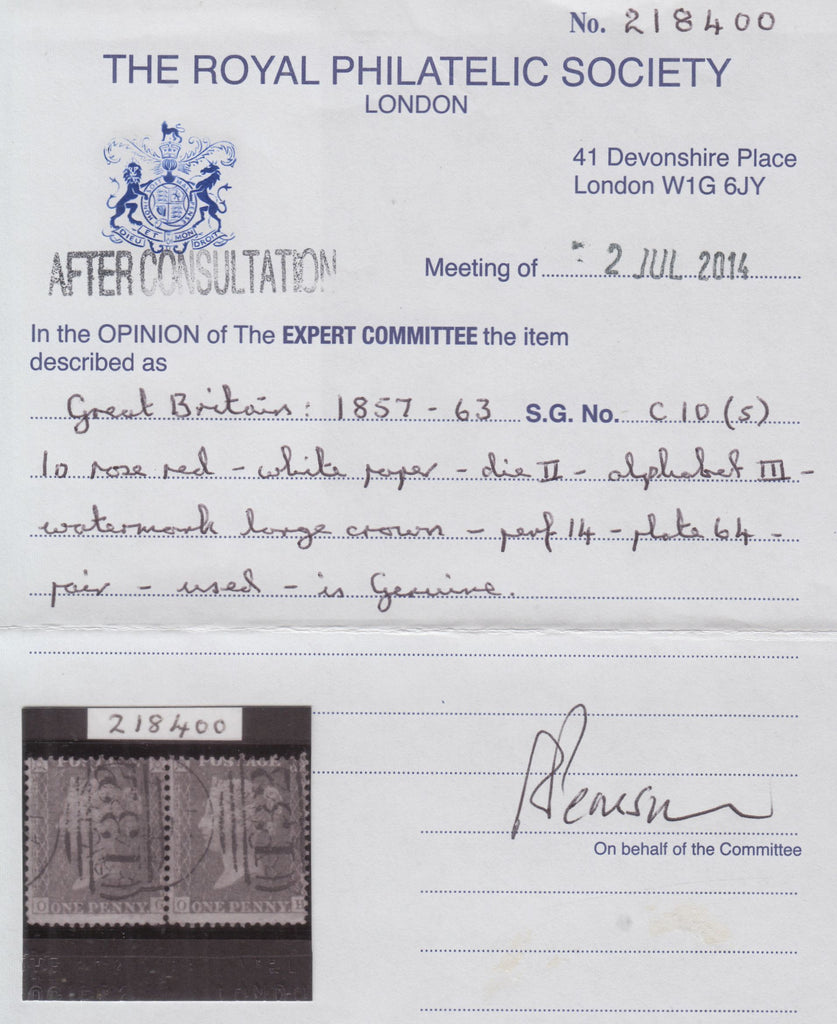 No. 218400
THE ROYAL PHILATELIC SOCIETY
LONDON
41 Devonshire Place
London W1G 6JY
DIEU ET MON DROIT
AFTER CONSULTATION
Meeting of 2 JUL 2014
In the OPINION of The EXPERT COMMITTEE the item
described as
Great Britain: 1857 - 63 S.G. No. C10 (s)
1d rose red - white paper - die II - alphabet III -
watermark large crown - perf 14 - plate 64 -
pair - used - is Genuine.
218400
POSTAGE
132 132
ONE PENNY ONE PENNY
On behalf of the Committee